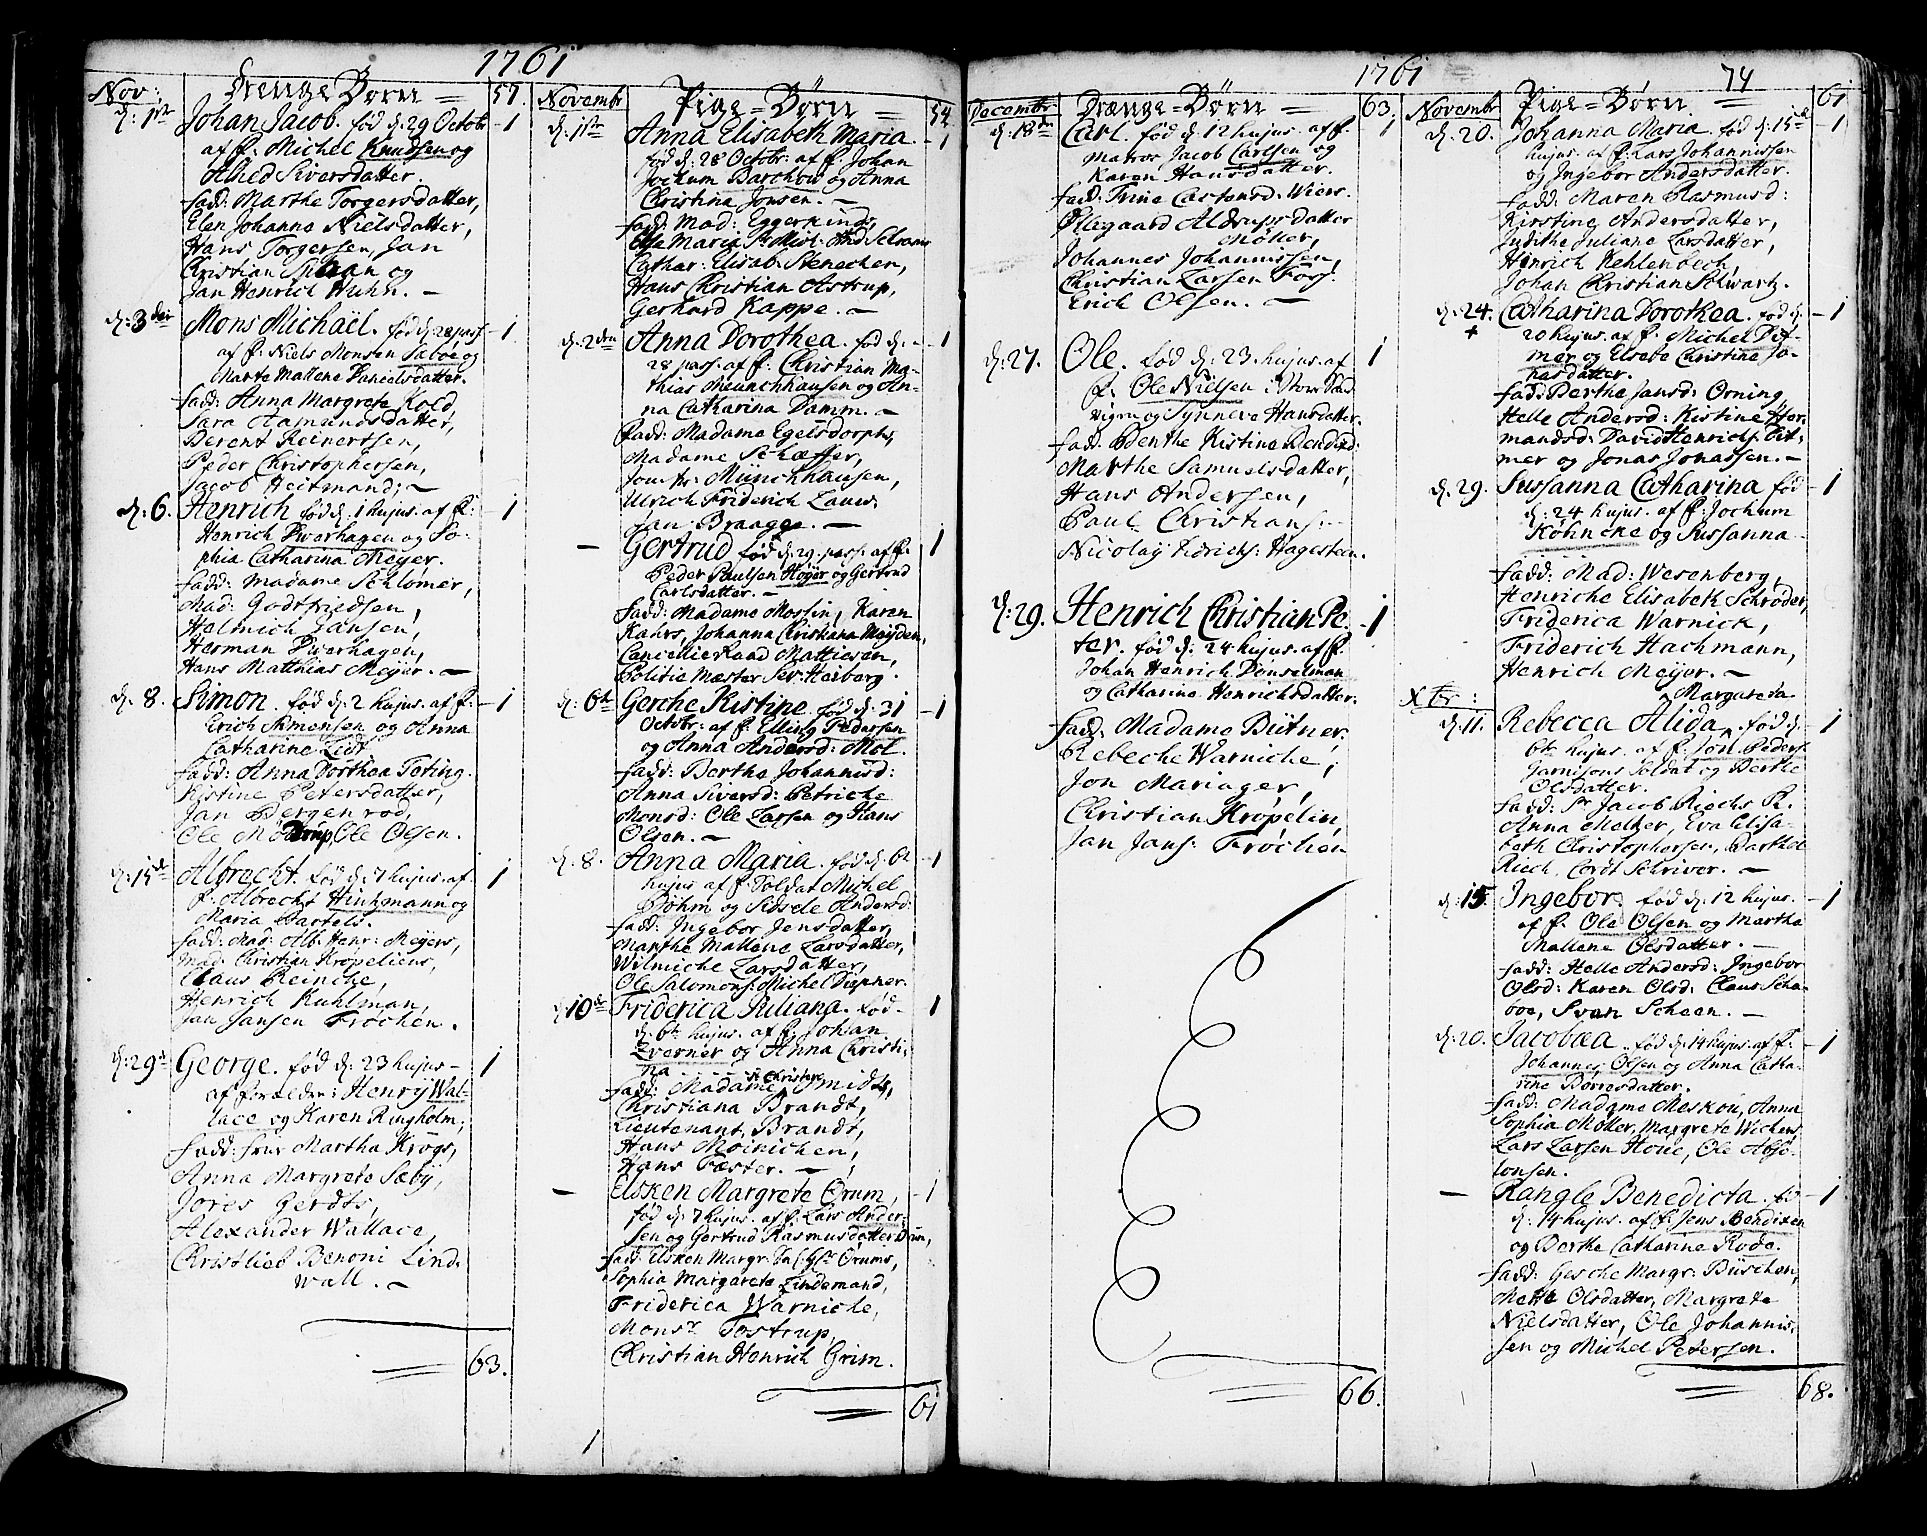 1761
Nov: Drenge Børn 57.
d: 1ste Johan Jacob. fød d: 29 Octobr -1
af f: Michel Knudsen og
Ahed Siversdatter.
fadd: Marthe Torgersdatter,
Elen Johanna Nielsdatter,
Hans Torgersen, Jan
Christian og
Jan Henrich Huhn. —
d: 3die Mons Michaël. fød d: 28 pass. -1
af f: Niels Monsen Sæboe og
Marte Mallene Danielsdatter.
fadd: Anna Margrete Kold,
Sara Aamundsdatter,
Berent Reinertsen,
Peder Christophersen,
Jacob Heitmand; —
d: 6. Henrich fød d: 1 hujus. af f: -1
Henrich Dwerhagen og So-
phia Catharina Meyer.
fadd: Madame Schlømer,
Mad: Godtfriedsen,
Helmich Jansen,
Herman Dwerhagen,
Hans Matthias Meyer. —
d: 8. Simon. fød d: 2 hujus. af f: -1
Erich Simensen og Anna
Catharine Lidt
fadd: Anna Dorthea Toting.
Kistine Petersdatter,
Jan Bergenrod,
Ole Ole Olsen.
d: 15de Albrecht. fød d: 7 hujus. af 1
f. Albrecht Hinkmann og
Maria Bartels.
fadd: Mad: Alb. Henr: Meyers,
Mad: Christian Kropeliens,
Claus Reinche,
Henrich Kuhlman,
Jan Jansen Frøchen.
d: 29de George. fød d: 23 hujus - 1
af forældre: Henry Wal-
lace og Karen Ringholm;
fadd: frue Martha Krogs,
Anna Margrete Sæby,
Jores Gerdts,
Alexander Wallace,
Christlieb Benoni Lind-
wall. —
63.
Novembr Pige-Børn 54
d: 1ste Anna Elisabeth Maria. -1
fød d: 28 Octobr: af f: Johan
Jochum Barchow og Anna
Christina Jonsen. —
fadd: Mad: Eggerkings,
Else Maria
Cathar: Elisab: Stenechen,
Hans Christian Astrup,
Gerhard Kappe. —
d: 2den Anna Dorothea. fød d: -1
28 pass. af f: Christian Ma-
thias Meunchhausen og An-
na Catharina Damm. —
fadd: Madame Egelsdorph,
Madame Schæffer,
Jomfr: Münchhausen,
Ulrich Friderich Lauw.
Jan Braagge. —
— Gertrud fød d: 29. pass. af f. 1
Peder Paulsen Høyer og Gertrud
Carlsdatter. —
fadd: Madame Mossin, Karen
Kahrs, Johanna Christiana Meyden,
Cancellie Raad Mattiesen,
Politie Mæster Sr. Heiberg.
d: 6te Gerche Kistine. fød d: 31 -1
Octobr: af f. Elling Pedersen
og Anna Andersd: Mol.
fadd: Berthe Johannisd:
Anna Siversd: Petriche
Monsd: Ole Larsen og Hans
Olsen. —
d: 8. Anna Maria. fød d: 6te -1
hujus af f: Soldat Michel
Bøhm og Sidsele Andersd:
fadd: Ingebor Jensdatter,
Marthe Mallene Larsdatter,
Wilmiche Larsdatter,
Ole Salomons: Michel Diepner.
d: 10de Friderica Juliana. fød- 1
d. 6te hujus. af f. Johan
Zverner og Anna Christi-
na
fadd: Madame Smidts,
Christiana Brandt,
Lieutenant Brandt,
Hans Moinichen,
Hans Fæster. —
— Elsken Margrete Ørum, -1
fød d: 7 hujus. af f: Lars Ander-
sen og Gertrud Rasmusdatter Ørum,
fadd: Elsken Margr: Ørums,
Sophia Margareta Lindemand,
Friderica Warniche,
Monsr Tostrup,
Christian Henrich Grim.
61
1761
Decembr Drænge-Børn 63.
d: 18de Carl. fød d: 12 hujus. af f. 1
Matros Jacob Carlsen og
Karen Hansdatter.
fadd: Trine Castensd: Wiers.
Ollegaard Aldrupsdatter
Møller,
Johannes Johannissen,
Christian Larsen Fors.
Erich Olsen. —
d: 27. Ole. fød d: 23. hujus. af 1
f. Ole Nielsen i Store Sand
vigen og Synneve Hansdatter.
fadd: Benthe Kistine Bendixd:
Marthe Samuelsdatter,
Hans Andersen,
Paul Christians:
Nicolay Fridrichs: Hagesteen.
d: 29. Henrich Christian Pe- -1
ter. fød d: 24 hujus. af f.
Johan Henrich Dønselman
og Catharina Henrichsdatter.
fadd: Madame Bütner
Rebeche Warniche,
Jon Mariager,
Christian Kropelin,
Jan Jans: Frøchen
66.
74
Novembr Pige-Børn 61
d: 20. Johanna Maria. fød d: 15de -1
hujus. af f: Lars Johannissen
og Ingebor Andersdatter.
fadd: Maren Rasmusd:
Kirstine Andersdatter,
Judithe Juliane Larsdatter,
Hinrich Kehlenbech,
Johan Christian Schwartz.
d: 24. Catharina Dorothea. fød d: -1
+ 20 hujus. af f. Michel Dit-
mer og Elsebe Christine Jo-
nasdatter.
fad: Berthe Jansd: Orning,
Helle Andersd: Kistine Her-
mandsd: David Henrichs: Dit-
mer og Jonas Jonassen. —
d: 29. Sussanna Catharina fød -1
d: 24 hujus. af f: Jochum
Køhncke og Sussanna
fadd: Mad: Wesenberg,
Henriche Elisabeth Schrøder,
Friderica Warnick,
Friderich Hachmann,
Henrich Meyer. —
Xbr: Margareta
d: 11. Rebecca Alida ^ fød d: 1
6te hujus. af f. Jon Peders:
Garnisons Soldat og Berthe
Olsdatter.
fadd: Sr Jacob Riechs K.
Anna Melher, Eva Elisa-
beth Christophersen, Barthol
Riech, Cordt Schriver. —
d: 15 Ingebor, fød d: 12 hujus. -1
af f. Ole Olsen og Martha
Mallene Olsdatter. —
fadd: Helle Andersd: Ingebor
Olsd: Karen Olsd: Claus Scha-
boe, Svan Scheen. —
d: 20. Jacobæa. fød d: 14 hujus. af f. -1
Johannes Olsen og Anna Catha-
rine Børresdatter.
fadd: Madame Meskou, Anna
Sophia Møller, Margrete Wickers,
Lars Larsen Houe, Ole Abso-
lonsen.
— Rangle Benedicta. fød -1
d. 14 hujus. af f: Jens Bendixen
og Berthe Catharine Rode.
fadd: Gesche Margr: Büschen,
Mette Olsdatter, Margrete
Nielsdatter, Ole Johannis-
sen og Michel Petersen.
68.